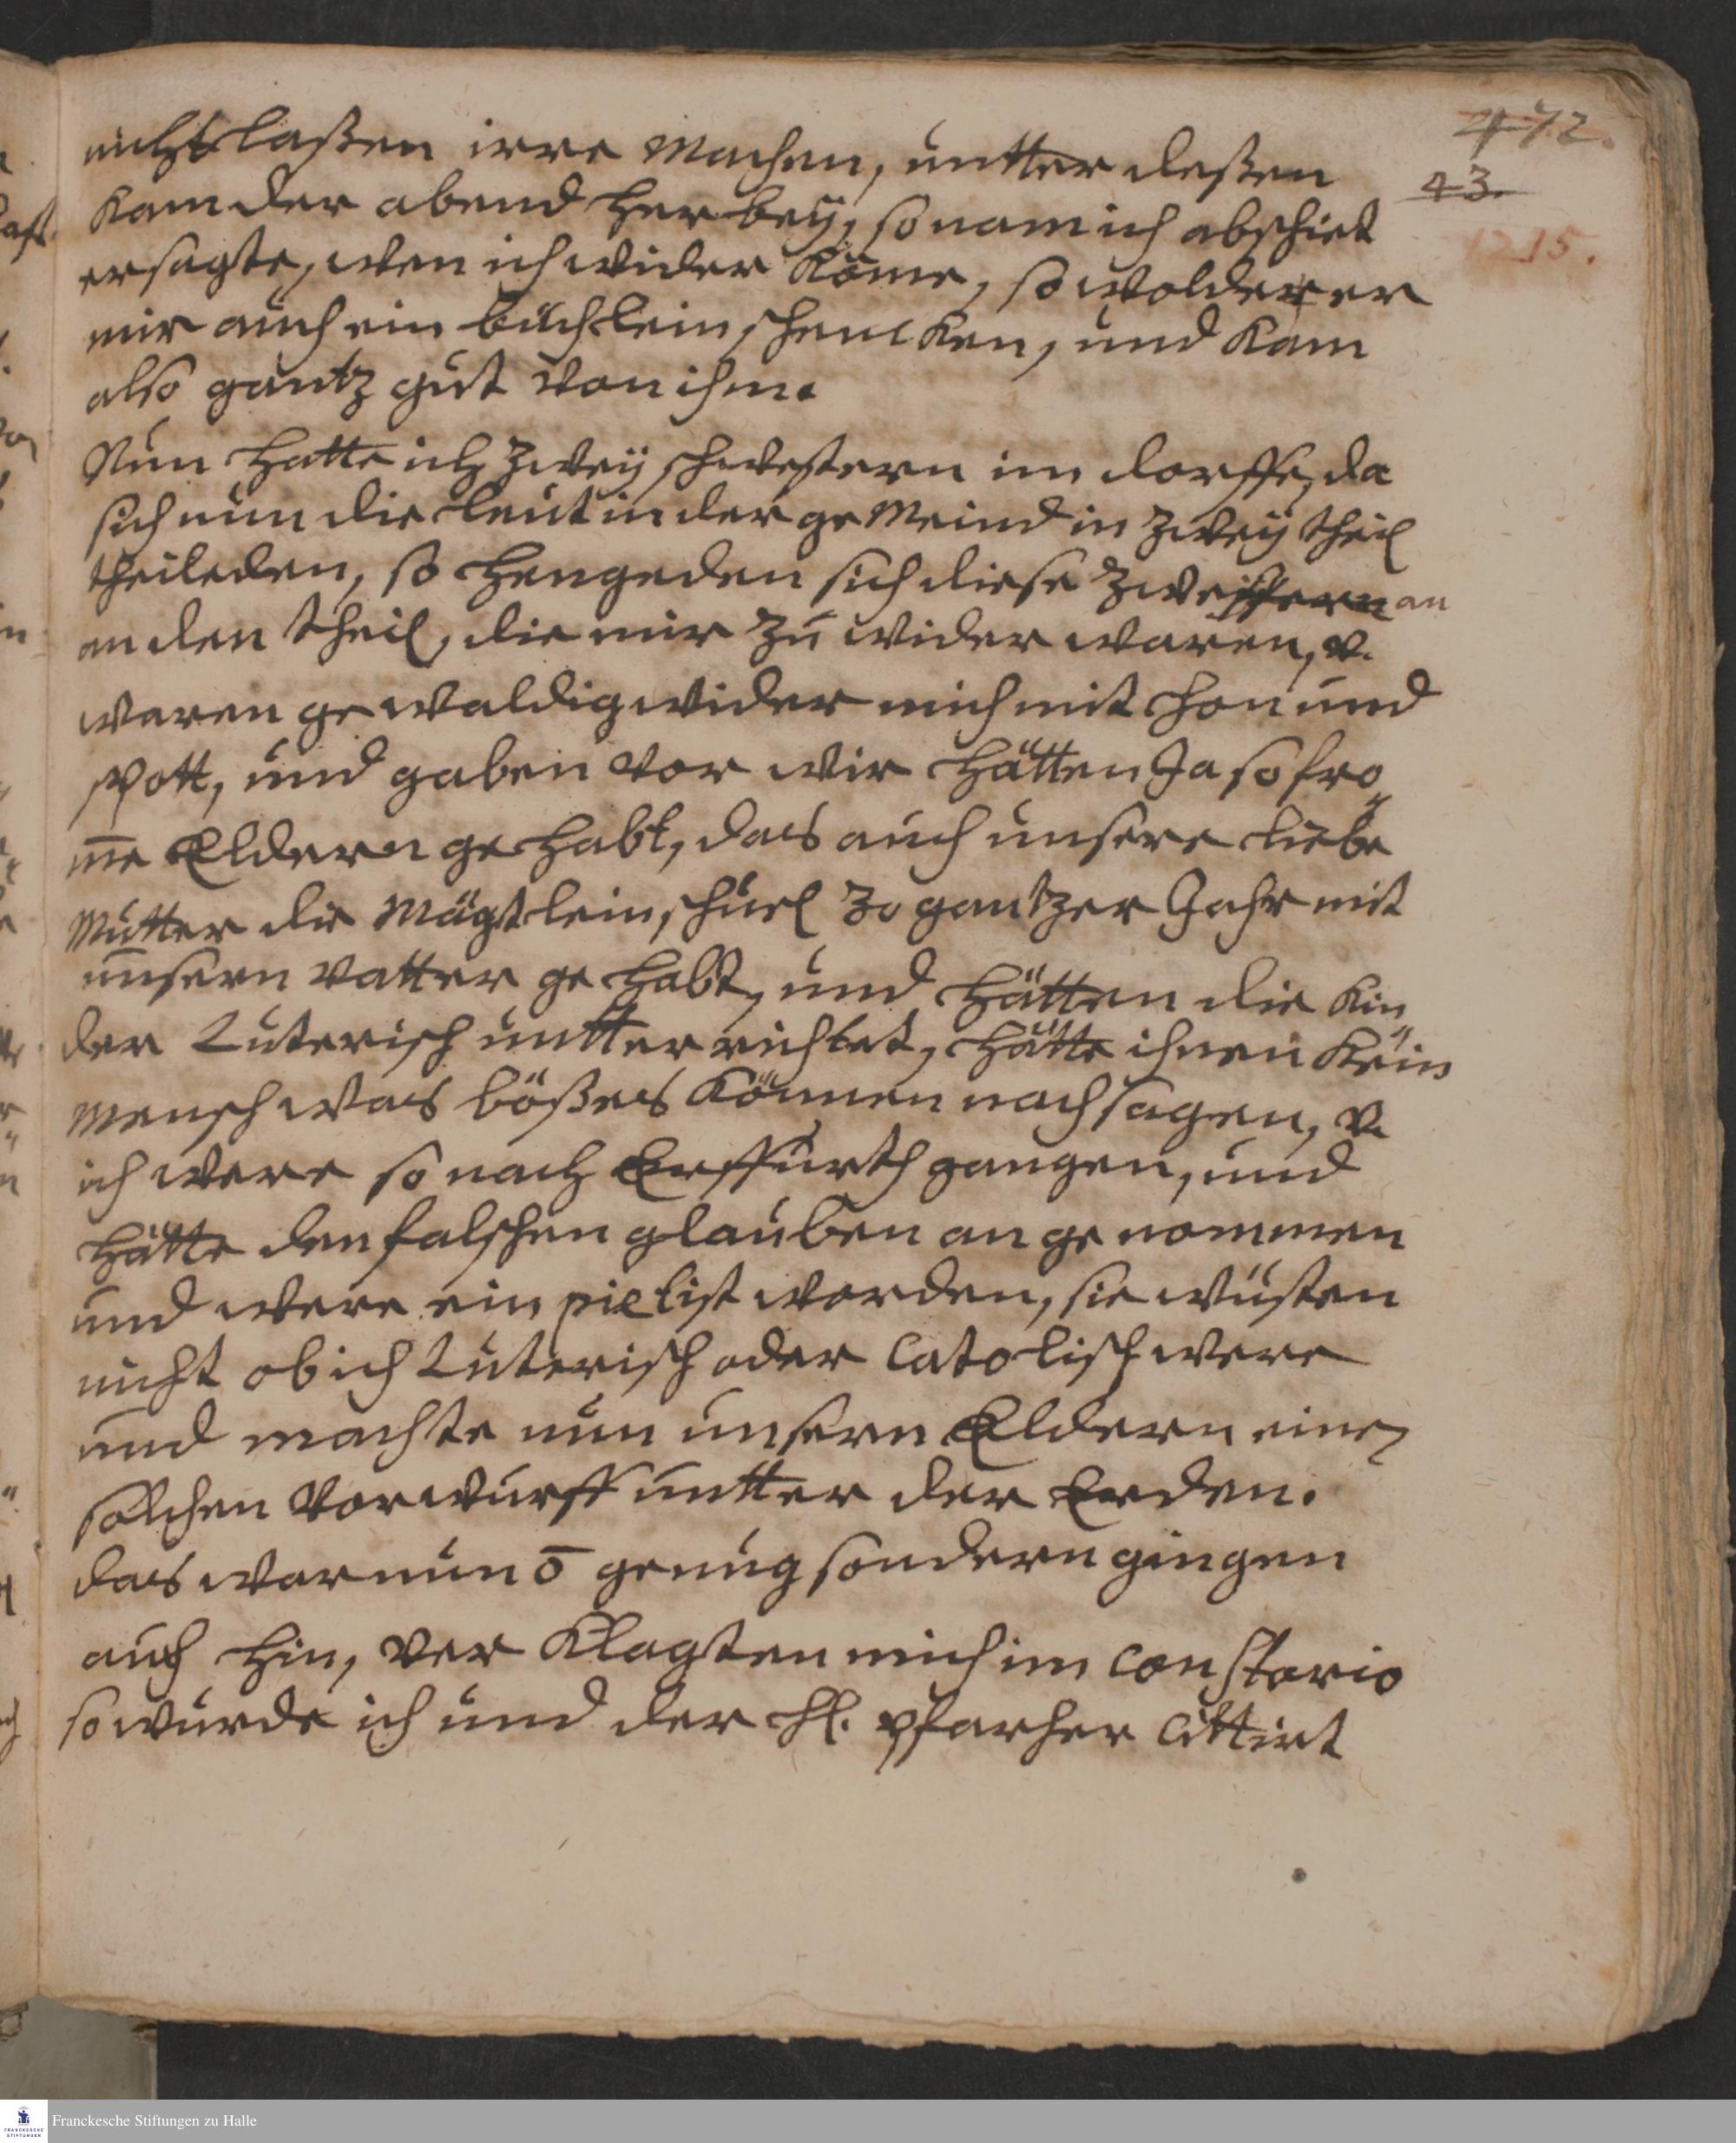 472.
43.
1215.
nicht laßen irre Machen, untter deßen
Kam der abend her bey, so nam ich abschiet
er sagte, wen ich wider Köme, so wolde er
mir auch ein büchlein schencken, und Kam
also gantz gut von ihm.
Nun hatte ich zwey schwestern im dorffe, da
sich nun die leut in der ge Meind in zwey theil
theileden, so hengeden sich diese zwei an
an den theil, die mir zu wider waren, v.
waren ge waldig wider mich mit hon und
spott, und gaben vor wir hätten Ja so fro
m̅e Eldern ge habt, das auch unsere liebe
Mutter die Mägtlein schuel 30 gantzer Jahr mit
unsern vatter ge habt, und hätten die Kin
der Luterisch untter richtet, hätte ihnen Kein
Mensch was bößes Können nach sagen, v.
ich were so nach Erffurth gangen, und
hätte den falschen glauben an ge nommen
und were ein pietist worden, sie wüsten
nicht ob ich Luterisch oder Catolisch were
und machte nun unsern Eldern einen
solchen vorwurff untter der Erden.
das war nun ō genug sondern gingen
auch hin, ver Klagten mich im Constorio
so wurde ich und der H. pfarher Cittirt
Franckesche Stiftungen zu Halle